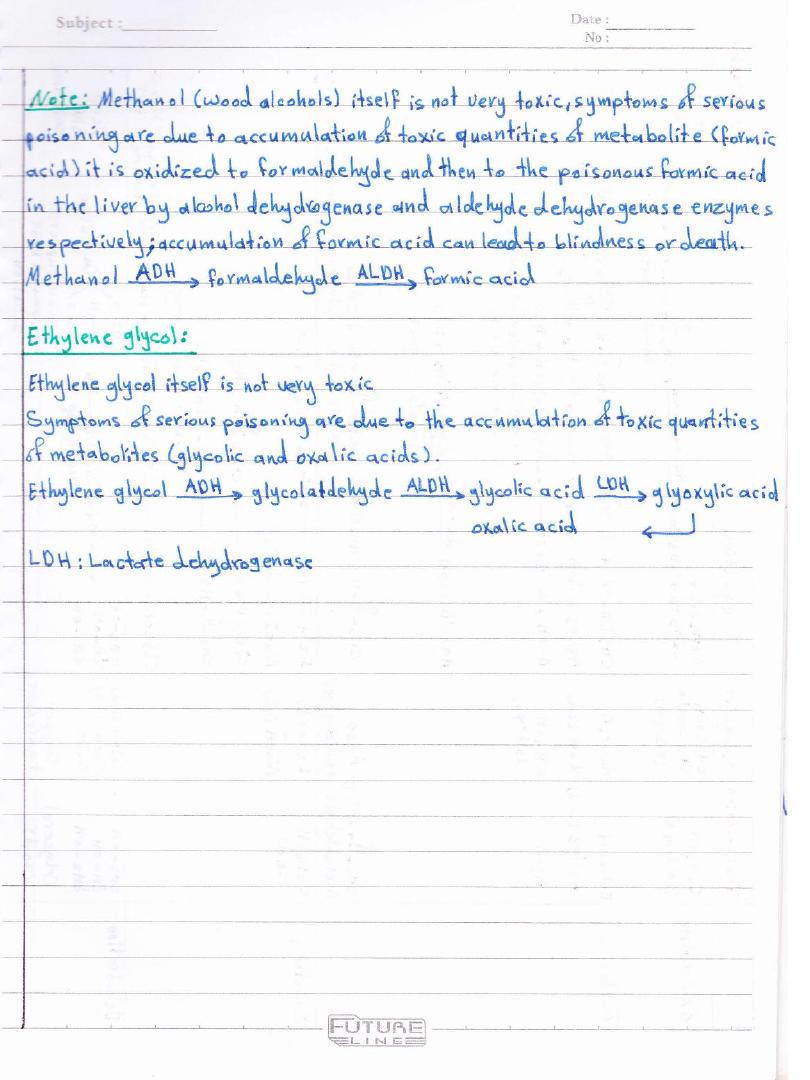 Subject :
Date :
No :
Note: Methanol (wood alcohols) itself is not very toxic, symptoms of serious
poisoning are due to accumulation of toxic quantities of metabolite (formic
acid) it is oxidized to formaldehyde and then to the poisonous formic acid
in the liver by alcohol dehydrogenase and aldehyde dehydrogenase enzymes
respectively; accumulation of formic acid can lead to blindness or death.
Methanol ADH → formaldehyde ALDH → formic acid
Ethylene glycol:
Ethylene glycol itself is not very toxic
Symptoms of serious poisoning are due to the accumulation of toxic quantities
of metabolites (glycolic and oxalic acids).
Ethylene glycol ADH → glycolaldehyde ALDH → glycolic acid LDH → glyoxylic acid
oxalic acid ←
LDH : Lactate dehydrogenase
FUTURE
LINE